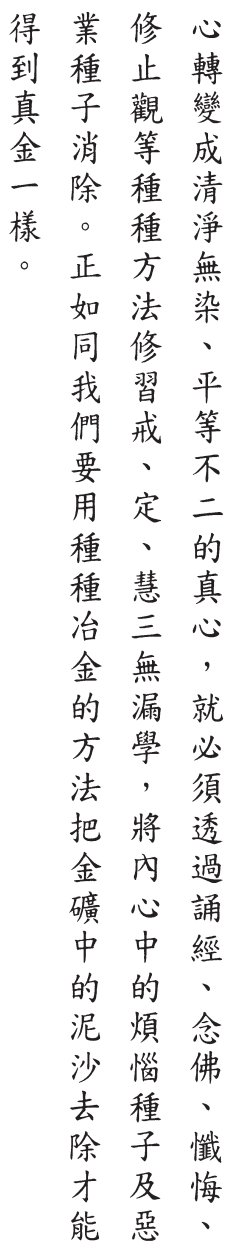 心轉變成清淨無染、平等不二的真心，就必須透過誦經、念佛、懺悔、
修止觀等種種方法修習戒、定、慧三無漏學，將內心中的煩惱種子及惡
業種子消除。正如同我們要用種種冶金的方法把金礦中的泥沙去除才能
得到真金一樣。